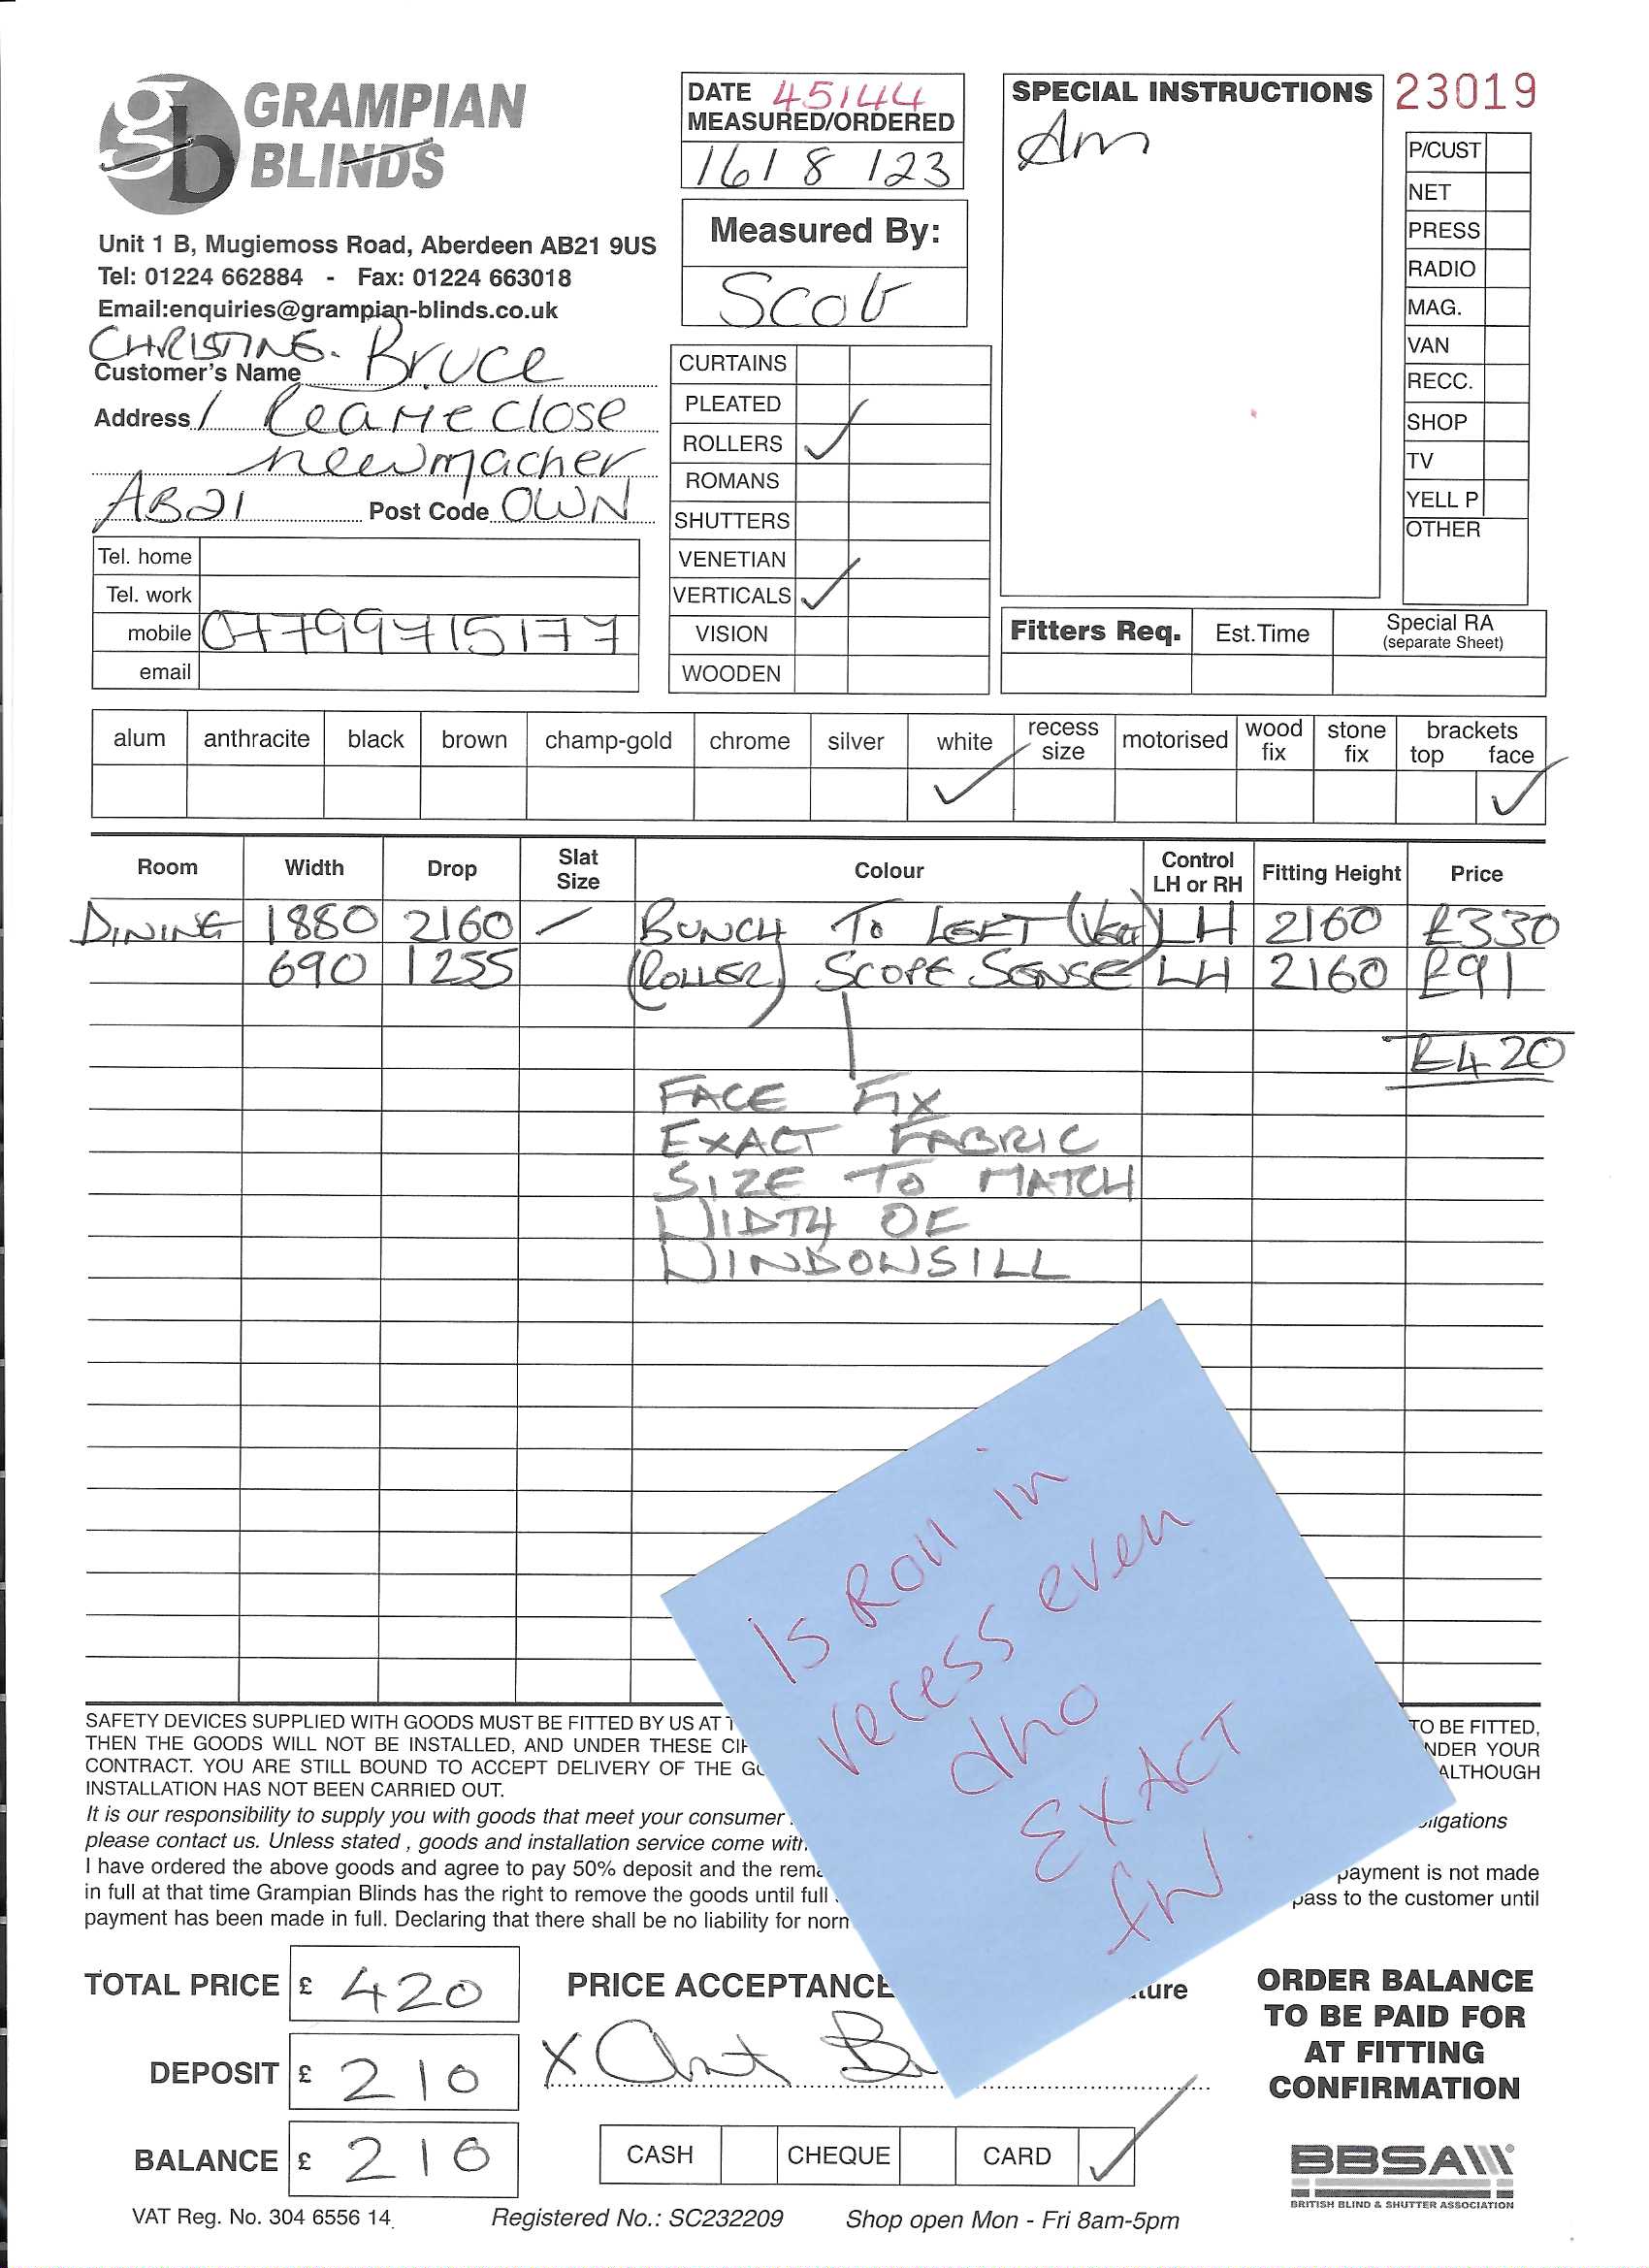 gb GRAMPIAN BLINDS
Unit 1 B, Mugiemoss Road, Aberdeen AB21 9US
Tel: 01224 662884 - Fax: 01224 663018
Email:enquiries@grampian-blinds.co.uk
CHRISTINE. Bruce
Customer's Name
Address 1 Close
newmacher
AB21 Post Code OWN
Tel. home
Tel. work
mobile 07799715177
email
DATE 45144
MEASURED/ORDERED
16/8/23
Measured By:
Scott
CURTAINS
PLEATED
ROLLERS ✓
ROMANS
SHUTTERS
VENETIAN
VERTICALS ✓
VISION
WOODEN
SPECIAL INSTRUCTIONS
Am
23019
P/CUST
NET
PRESS
RADIO
MAG.
VAN
RECC.
SHOP
TV
YELL P
OTHER
Fitters Req. Est.Time Special RA
(separate Sheet)
alum anthracite black brown champ-gold chrome silver white recess size motorised wood fix stone fix brackets top face
✓ ✓
Room Width Drop Slat Size Colour Control LH or RH Fitting Height Price
DINING 1880 2160 / BUNCH TO LEFT (Vert) LH 2160 £330
690 1255 (ROLLER) SCOPE SENSE LH 2160 £91
£420
FACE FIX
EXACT FABRIC
SIZE TO MATCH
WIDTH OF
WINDOWSILL
Is Roll in
recess even
dno
EXACT
fw.
SAFETY DEVICES SUPPLIED WITH GOODS MUST BE FITTED BY US AT TO BE FITTED,
THEN THE GOODS WILL NOT BE INSTALLED, AND UNDER THESE UNDER YOUR
CONTRACT. YOU ARE STILL BOUND TO ACCEPT DELIVERY OF THE ALTHOUGH
INSTALLATION HAS NOT BEEN CARRIED OUT.
It is our responsibility to supply you with goods that meet your consumer obligations
please contact us. Unless stated , goods and installation service come with
I have ordered the above goods and agree to pay 50% deposit and the payment is not made
in full at that time Grampian Blinds has the right to remove the goods until full pass to the customer until
payment has been made in full. Declaring that there shall be no liability for
TOTAL PRICE £ 420
DEPOSIT £ 210
BALANCE £ 210
PRICE ACCEPTANCE
X
CASH CHEQUE CARD ✓
ORDER BALANCE
TO BE PAID FOR
AT FITTING
CONFIRMATION
BBSA
BRITISH BLIND & SHUTTER ASSOCIATION
VAT Reg. No. 304 6556 14 Registered No.: SC232209 Shop open Mon - Fri 8am-5pm